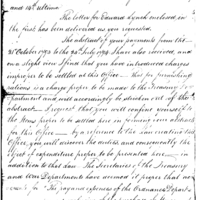 and 14th ultimo.
The letter for Edward Lynch enclosed in
the first has been delivered as you requested.
The abstract of your payments from the
31 October 1793 to the 30 July 1794 I have also received, and
on a slight view I find that you have introduced charges
improper to be settled at this office — that for furnishing
rations is a charge proper to be made to the Treasury De-
partment and will accordingly be stricken out of the
abstract. I request that you will confine yourself to
the Items proper to be settled here in forming your abstracts
for this Office — by a reference to the
you will discover the orders, and consequently the
object of expenditure proper to be presented here — in
addition to that law The Secretaries of the Treasury
and War Departments have deemed it proper that ac-
counts for the pay and expenses of the Ordnance Depart-